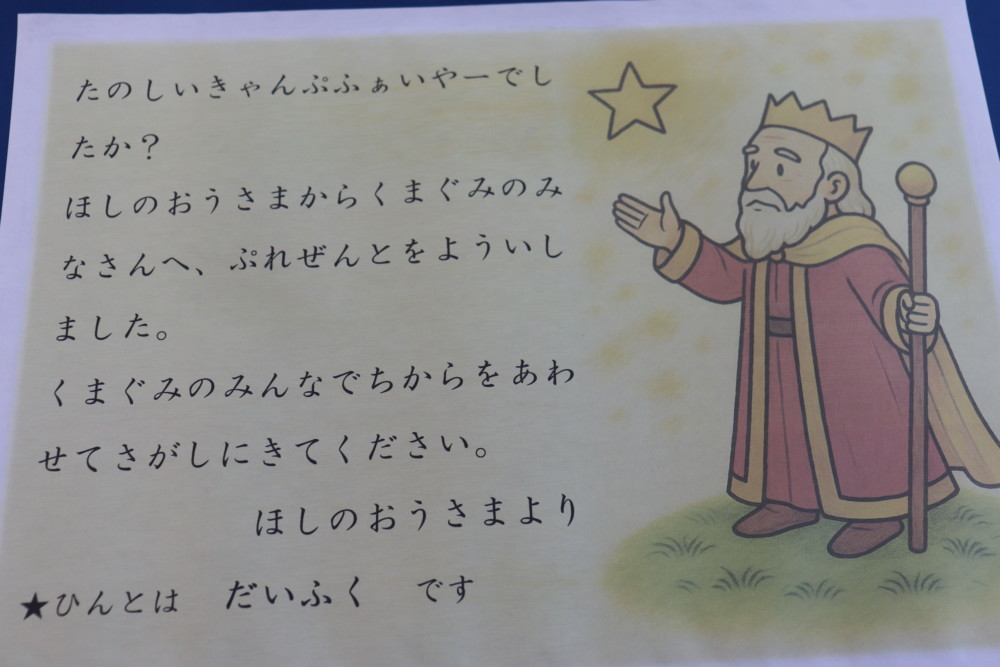 たのしいきゃんぷふぁいやーでし
たか？
ほしのおうさまからくまぐみのみ
なさんへ、ぷれぜんとをよういし
ました。
くまぐみのみんなでちからをあわ
せてさがしにきてください。
ほしのおうさまより
★ひんとは　だいふく　です